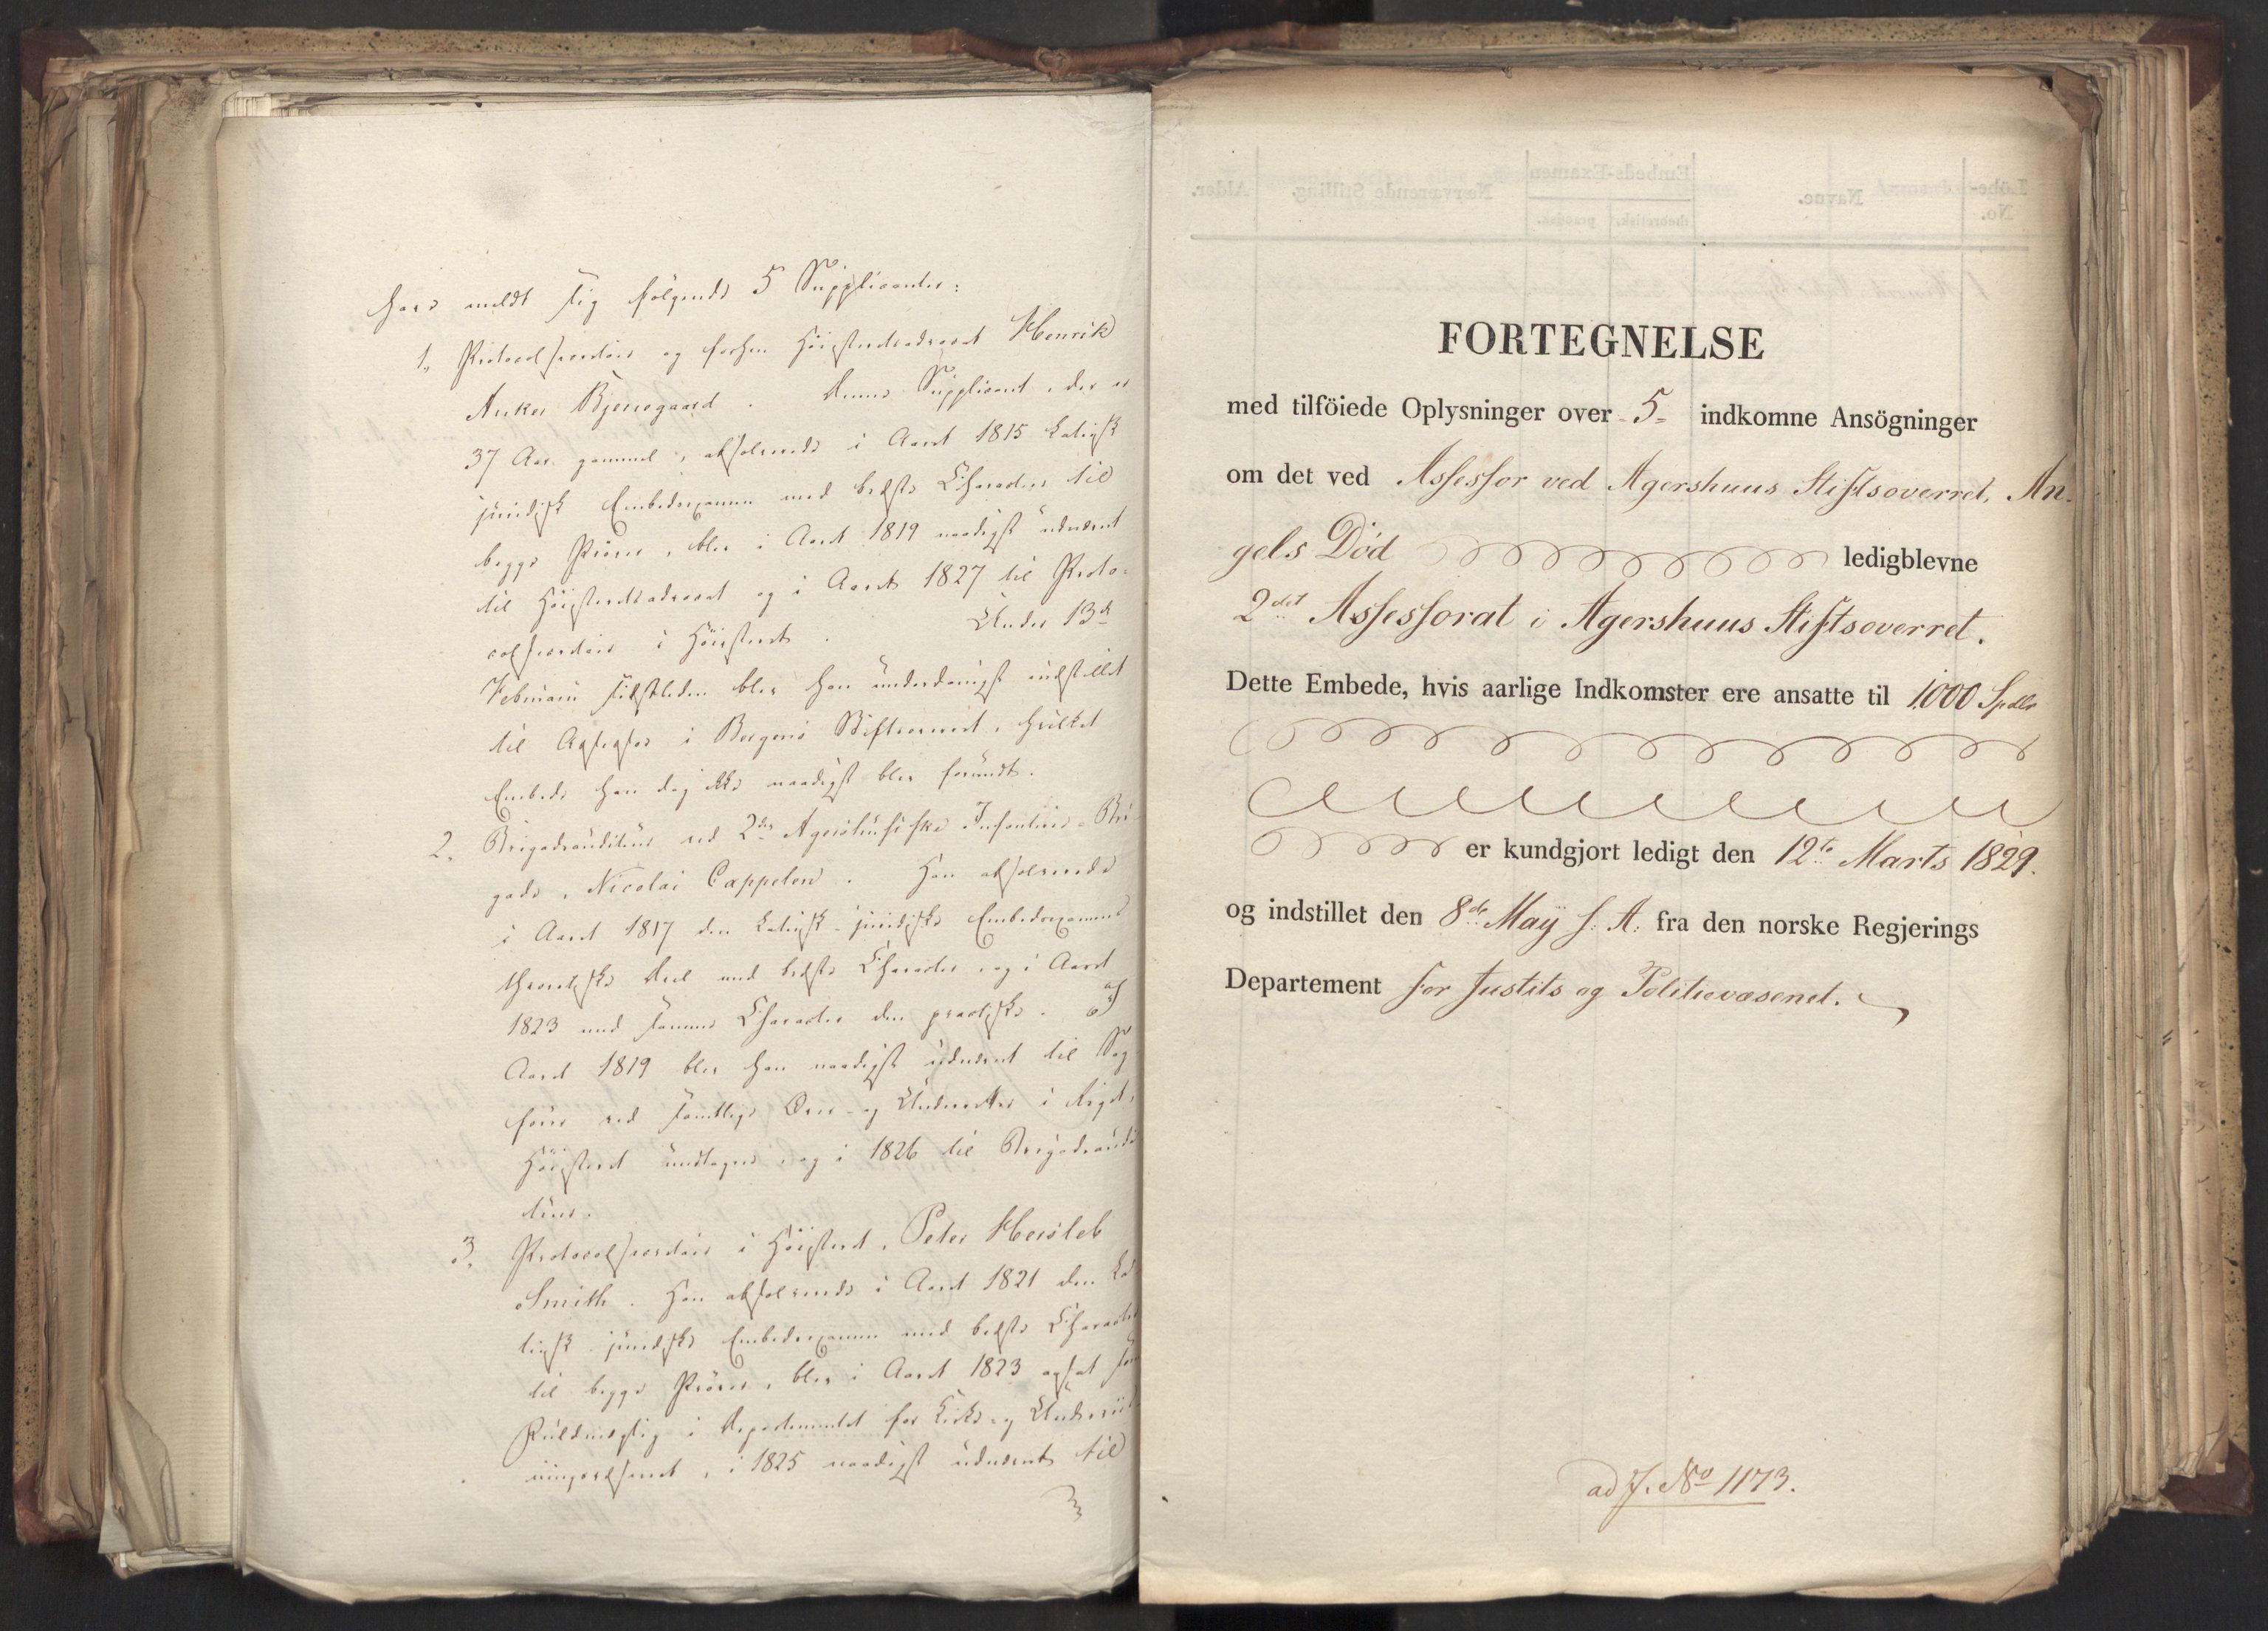 have meldt sig følgende 5 Supplicanter:
1., Protocolsecretair og forhen Höiesteretsadvocat Henrik
Anker Bjerregaard. Denne Supplicant, der er
37 Aar gammel, absolverede i Aaret 1815 Latinsk
juridisk Embedsexamen med bedste Characteer til
begge Prøver, blev i Aaret 1819 naadigst udnævnt
til Höiesteretsadvocat og i Aaret 1827 til Proto-
colsecretair i Höiesteret. Under 13de
Februarii sidstleden blev han underdanigst indstillet
til Assessor i Bergens Stiftsoverret, hvilket
Embede han dog ikke naadigst blev forundt.
2. Brigadeauditeur ved 2den Agershuusiske Infanterie-Bri-
gade, Nicolai Cappelen. Han absolverede
i Aaret 1817 den Latinsk-juridiske Embedsexamens
theoretiske Deel med bedste Characteer, og i Aaret
1823 med samme Characteer den practiske. I
Aaret 1819 blev han naadigst udnævnt til Sag-
fører ved samtlige Over- og Underretter i Riget,
Höiesteret undtagen, og i 1826 til Brigadeaudi-
teur.
3. Protocolsecretair i Höiesteret, Peter Hersleb
Smith. Han absolverede i Aaret 1821 den La-
tinsk-juridiske Embedsexamen med bedste Characteer
til begge Prøver, blev i Aaret 1823 ansat som
Fuldmægtig i Departementet for Kirke- og Underviis-
ningsvæsenet, i 1825 naadigst udnævnt til
FORTEGNELSE
med tilföiede Oplysninger over 5 indkomne Ansögninger
om det ved Assessor ved Agershuus Stiftsoverret, An-
gels Död ledigblevne
2det Assessorat i Agershuus Stiftsoverret.
Dette Embede, hvis aarlige Indkomster ere ansatte til 1000 Spdlr
er kundgjort ledigt den 12te Marts 1829.
og indstillet den 8de Maÿ s. A. fra den norske Regjerings
Departement for Justits og Politievæsenet.
ad J. No 1173.